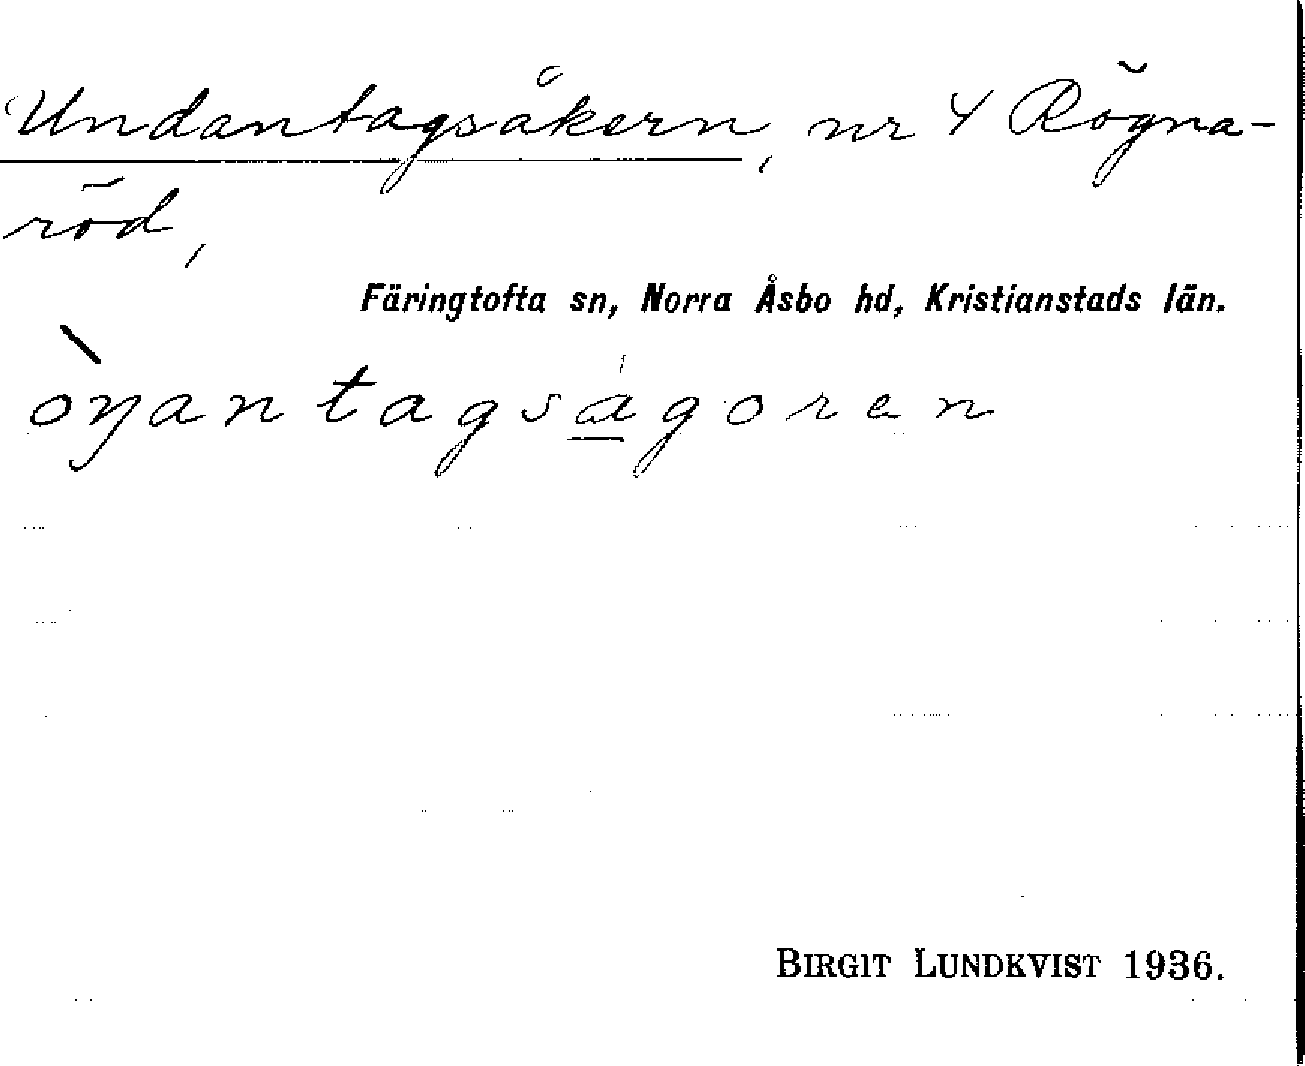 Undantagsåkern, nr 4 Rögna-
röd,
Färingtofta sn, Norra Åsbo hd, Kristianstads län.
òŋantagságoren
BIRGIT LUNDKVIST 1936.